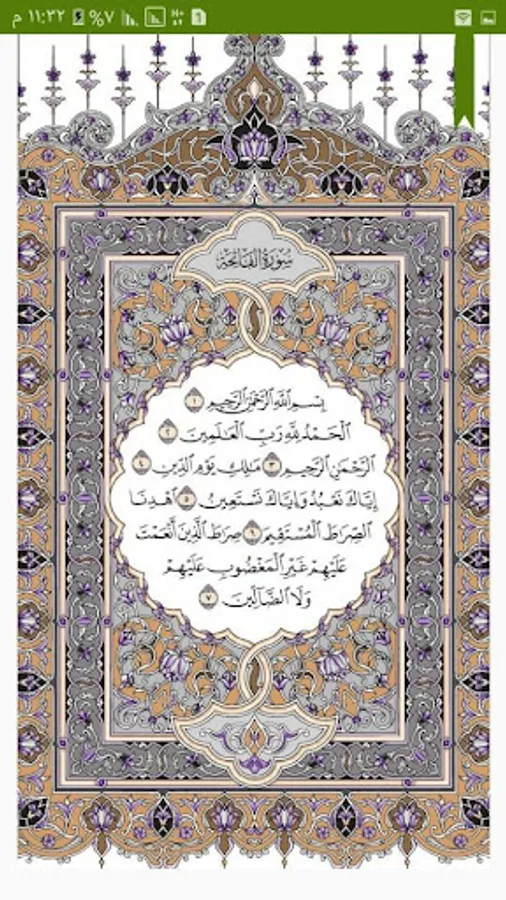 ١١:٣٢ م ٧%
سُورَةُ الفَاتِحَةِ
بِسْمِ ٱللَّهِ ٱلرَّحْمَٰنِ ٱلرَّحِيمِ ١
ٱلْحَمْدُ لِلَّهِ رَبِّ ٱلْعَٰلَمِينَ ٢
ٱلرَّحْمَٰنِ ٱلرَّحِيمِ ٣ مَٰلِكِ يَوْمِ ٱلدِّينِ ٤
إِيَّاكَ نَعْبُدُ وَإِيَّاكَ نَسْتَعِينُ ٥ ٱهْدِنَا
ٱلصِّرَٰطَ ٱلْمُسْتَقِيمَ ٦ صِرَٰطَ ٱلَّذِينَ أَنْعَمْتَ
عَلَيْهِمْ غَيْرِ ٱلْمَغْضُوبِ عَلَيْهِمْ
وَلَا ٱلضَّآلِّينَ ٧